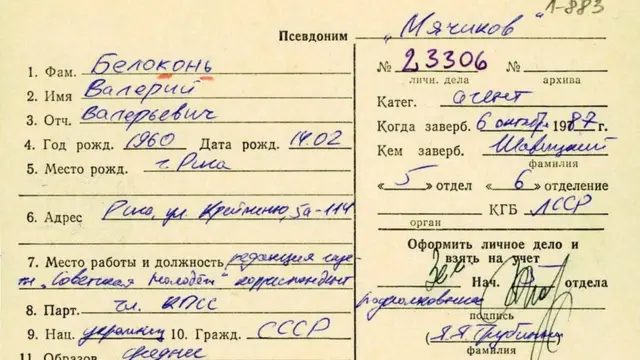 1-883
Псевдоним „Мячиков"
1. Фам. Белоконь
2. Имя Валерий
3. Отч. Валерьевич
4. Год рожд. 1960 Дата рожд. 14.02
5. Место рожд. г. Рига
6. Адрес Рига, ул. 5а-114
7. Место работы и должность редакция газе-
т. „Советская молодёжь" корреспондент
8. Парт. чл. КПСС
9. Нац. украинец 10. Гражд. СССР
11. Образов. среднее
№ 23306 №
личн. дела архива
Катег. агент
Когда заверб. 6 октябр 1987г.
Кем заверб. Шавицкий
фамилия
„5" отдел „6" отделение
КГБ ЛССР
орган
Оформить личное дело и
взять на учет
Зам. Нач. 5 отдела
подполковник
подпись
фамилия